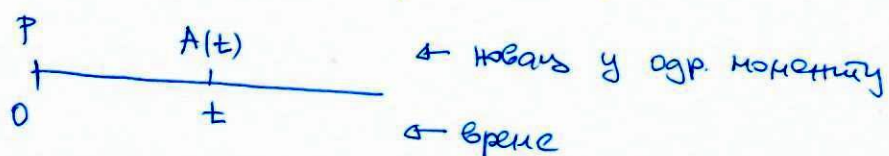 P A(t) ← новац у одр. моменту
0 t ← време